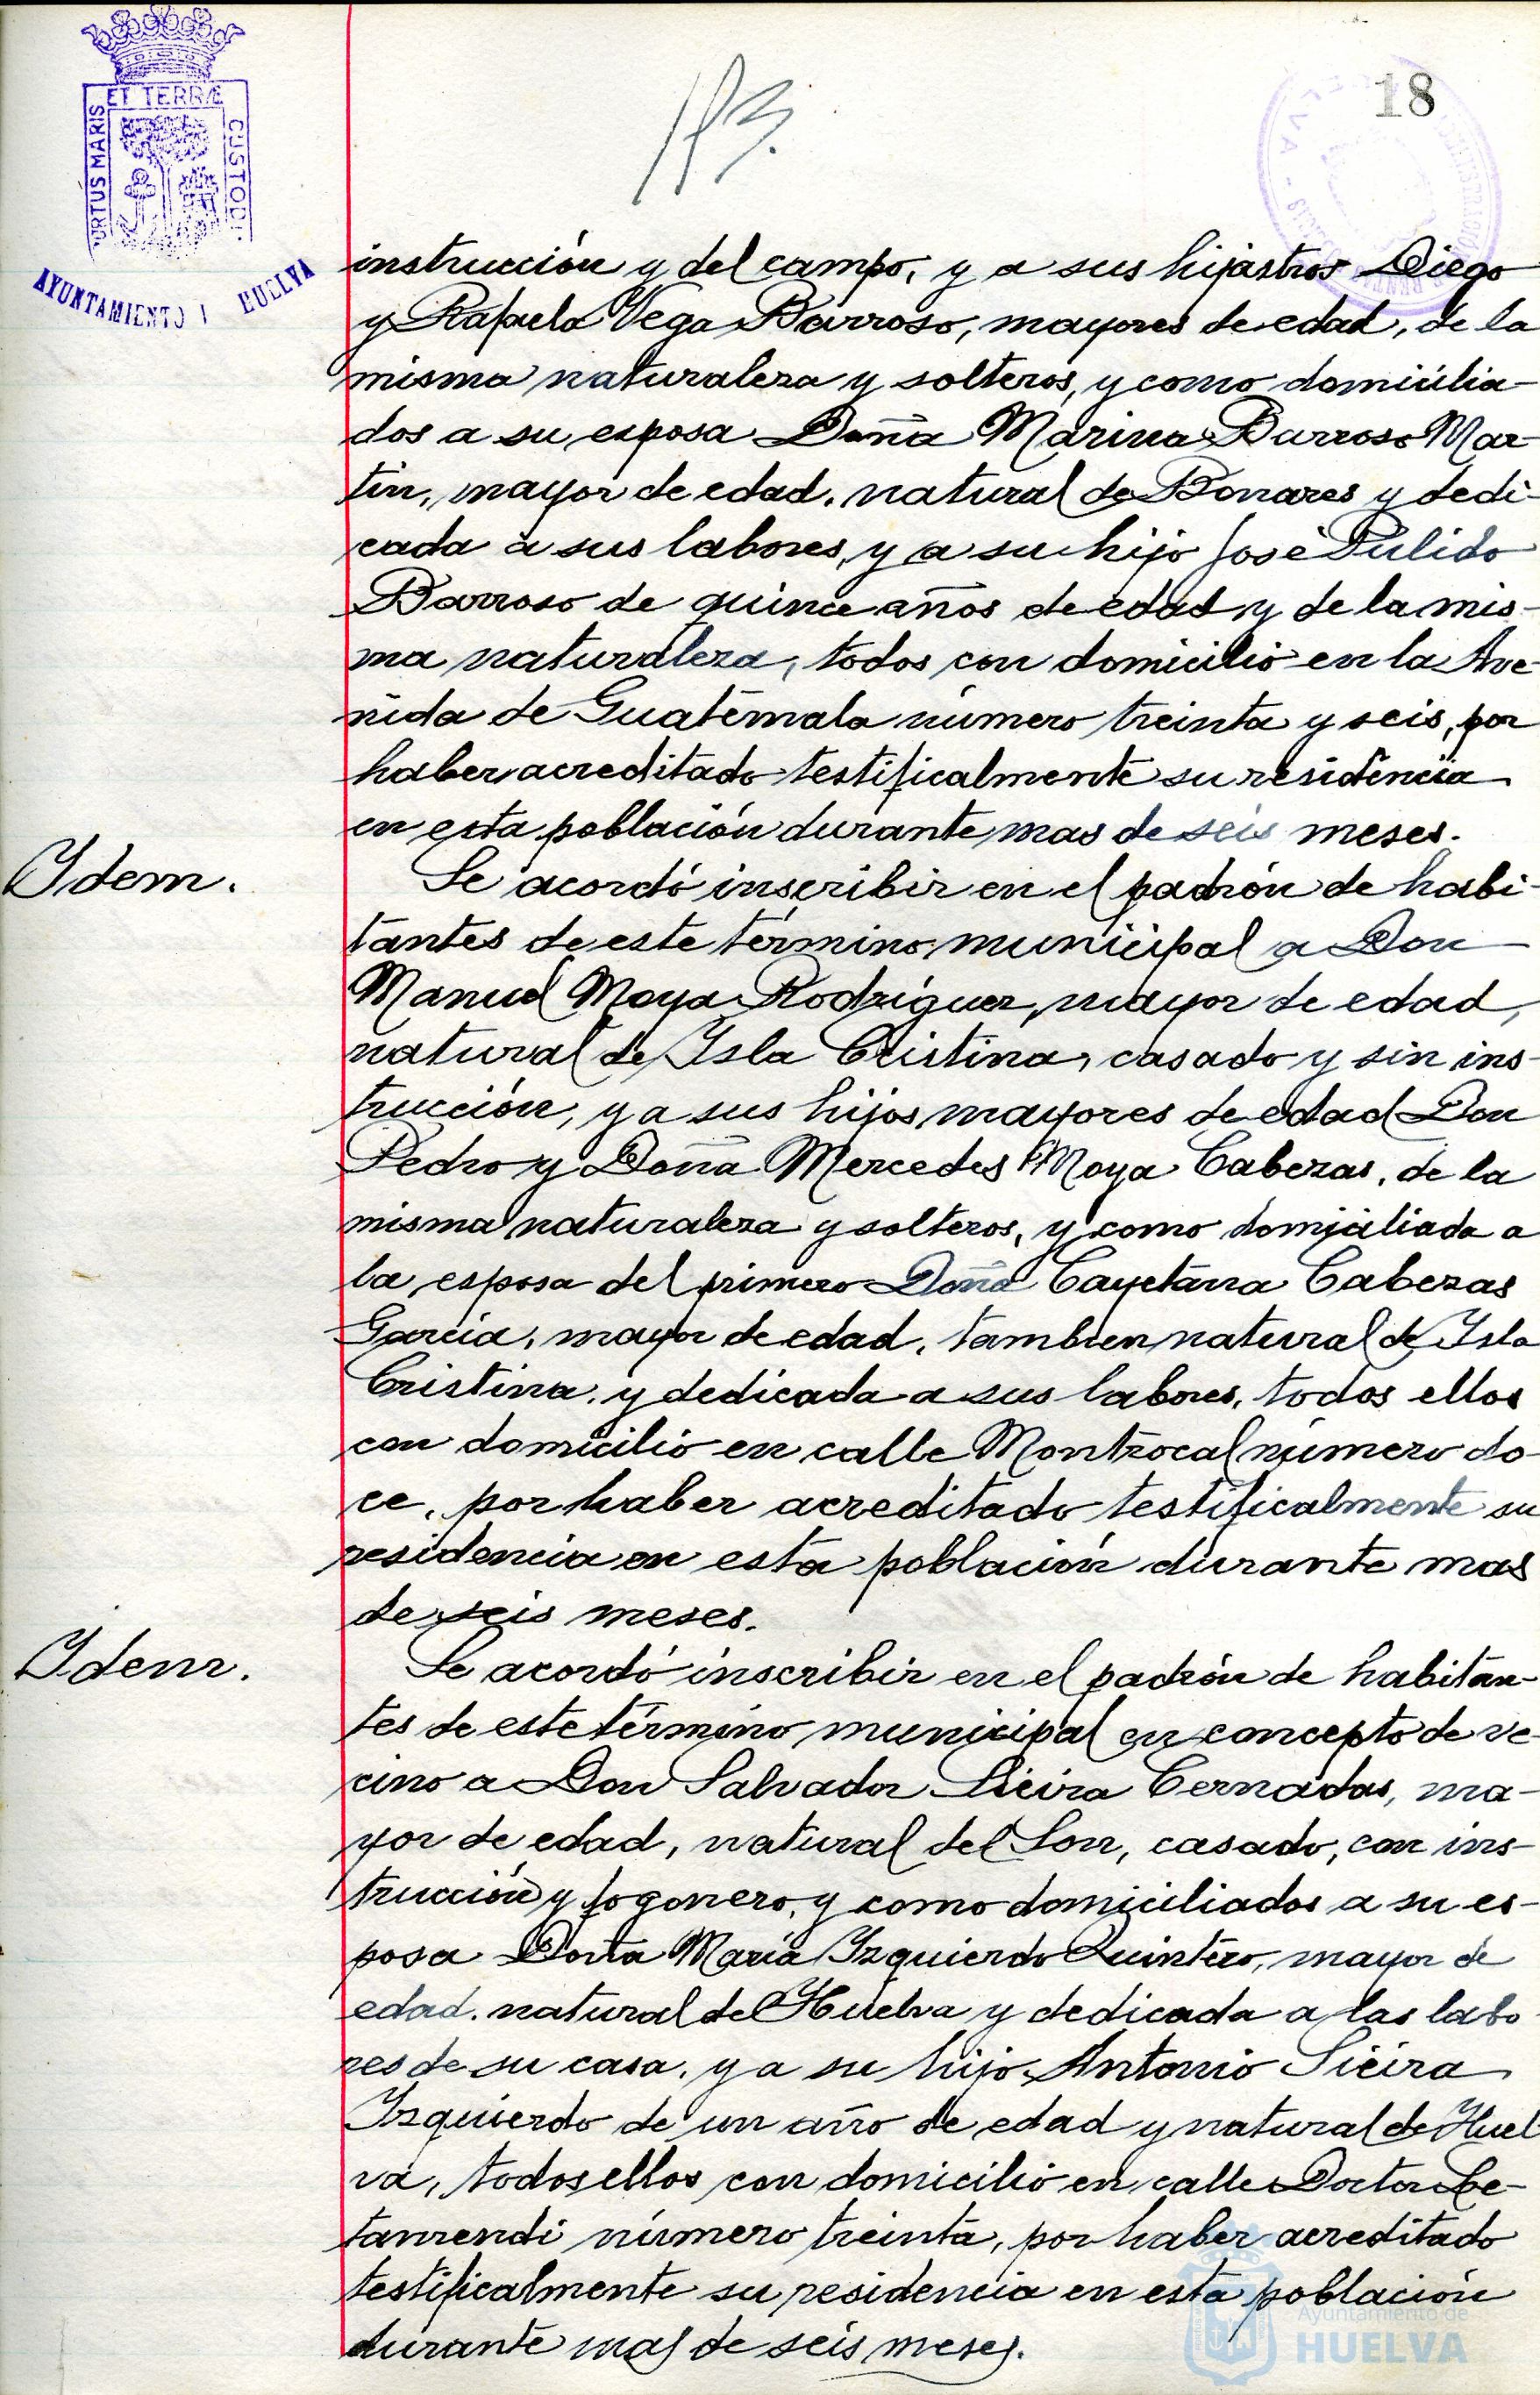 ET TERRÆ
PORTUS MARIS
CUSTODI
AYUNTAMIENTO HUELVA
113.
18
instrucción y del campo, y a sus hijastros Diego
y Rafaela Vega Barroso, mayores de edad, de la
misma naturaleza y solteros, y como domicilia-
dos a su esposa Doña Marina Barroso Mar-
tin, mayor de edad, natural de Bonares y dedi-
cada a sus labores, y a su hijo José Pulido
Barroso de quince años de edad y de la mis-
ma naturaleza, todos con domicilio en la Ave-
nida de Guatemala número treinta y seis, por
haber acreditado testificalmente su residencia
en esta población durante mas de seis meses.
Ydem.
Se acordó inscribir en el padrón de habi-
tantes de este término municipal a Don
Manuel Moya Rodriguez, mayor de edad,
natural de Ysla Cristina, casado y sin ins-
trucción, y a sus hijos mayores de edad Don
Pedro y Doña Mercedes Moya Cabezas, de la
misma naturaleza y solteros, y como domiciliada a
la esposa del primero Doña Cayetana Cabezas
Garcia, mayor de edad, tambien natural de Ysla
Cristina, y dedicada a sus labores, todos ellos
con domicilio en calle Montrocal número do-
ce, por haber acreditado testificalmente su
residencia en esta población durante mas
de seis meses.
Ydem.
Se acordó inscribir en el padrón de habitan-
tes de este término municipal en concepto de ve-
cino a Don Salvador Sieira Cernadas, ma-
yor de edad, natural del Son, casado, con ins-
trucción y fogonero, y como domiciliados a su es-
posa Doña María Yzquierdo Quintero, mayor de
edad, natural de Huelva y dedicada a las labo
res de su casa, y a su hijo Antonio Sieira
Yzquierdo de un año de edad y natural de Huel
va, todos ellos con domicilio en calle Doctor Le-
tamendi número treinta, por haber acreditado
testificalmente su residencia en esta población
durante mas de seis meses.
Ayuntamiento de
HUELVA